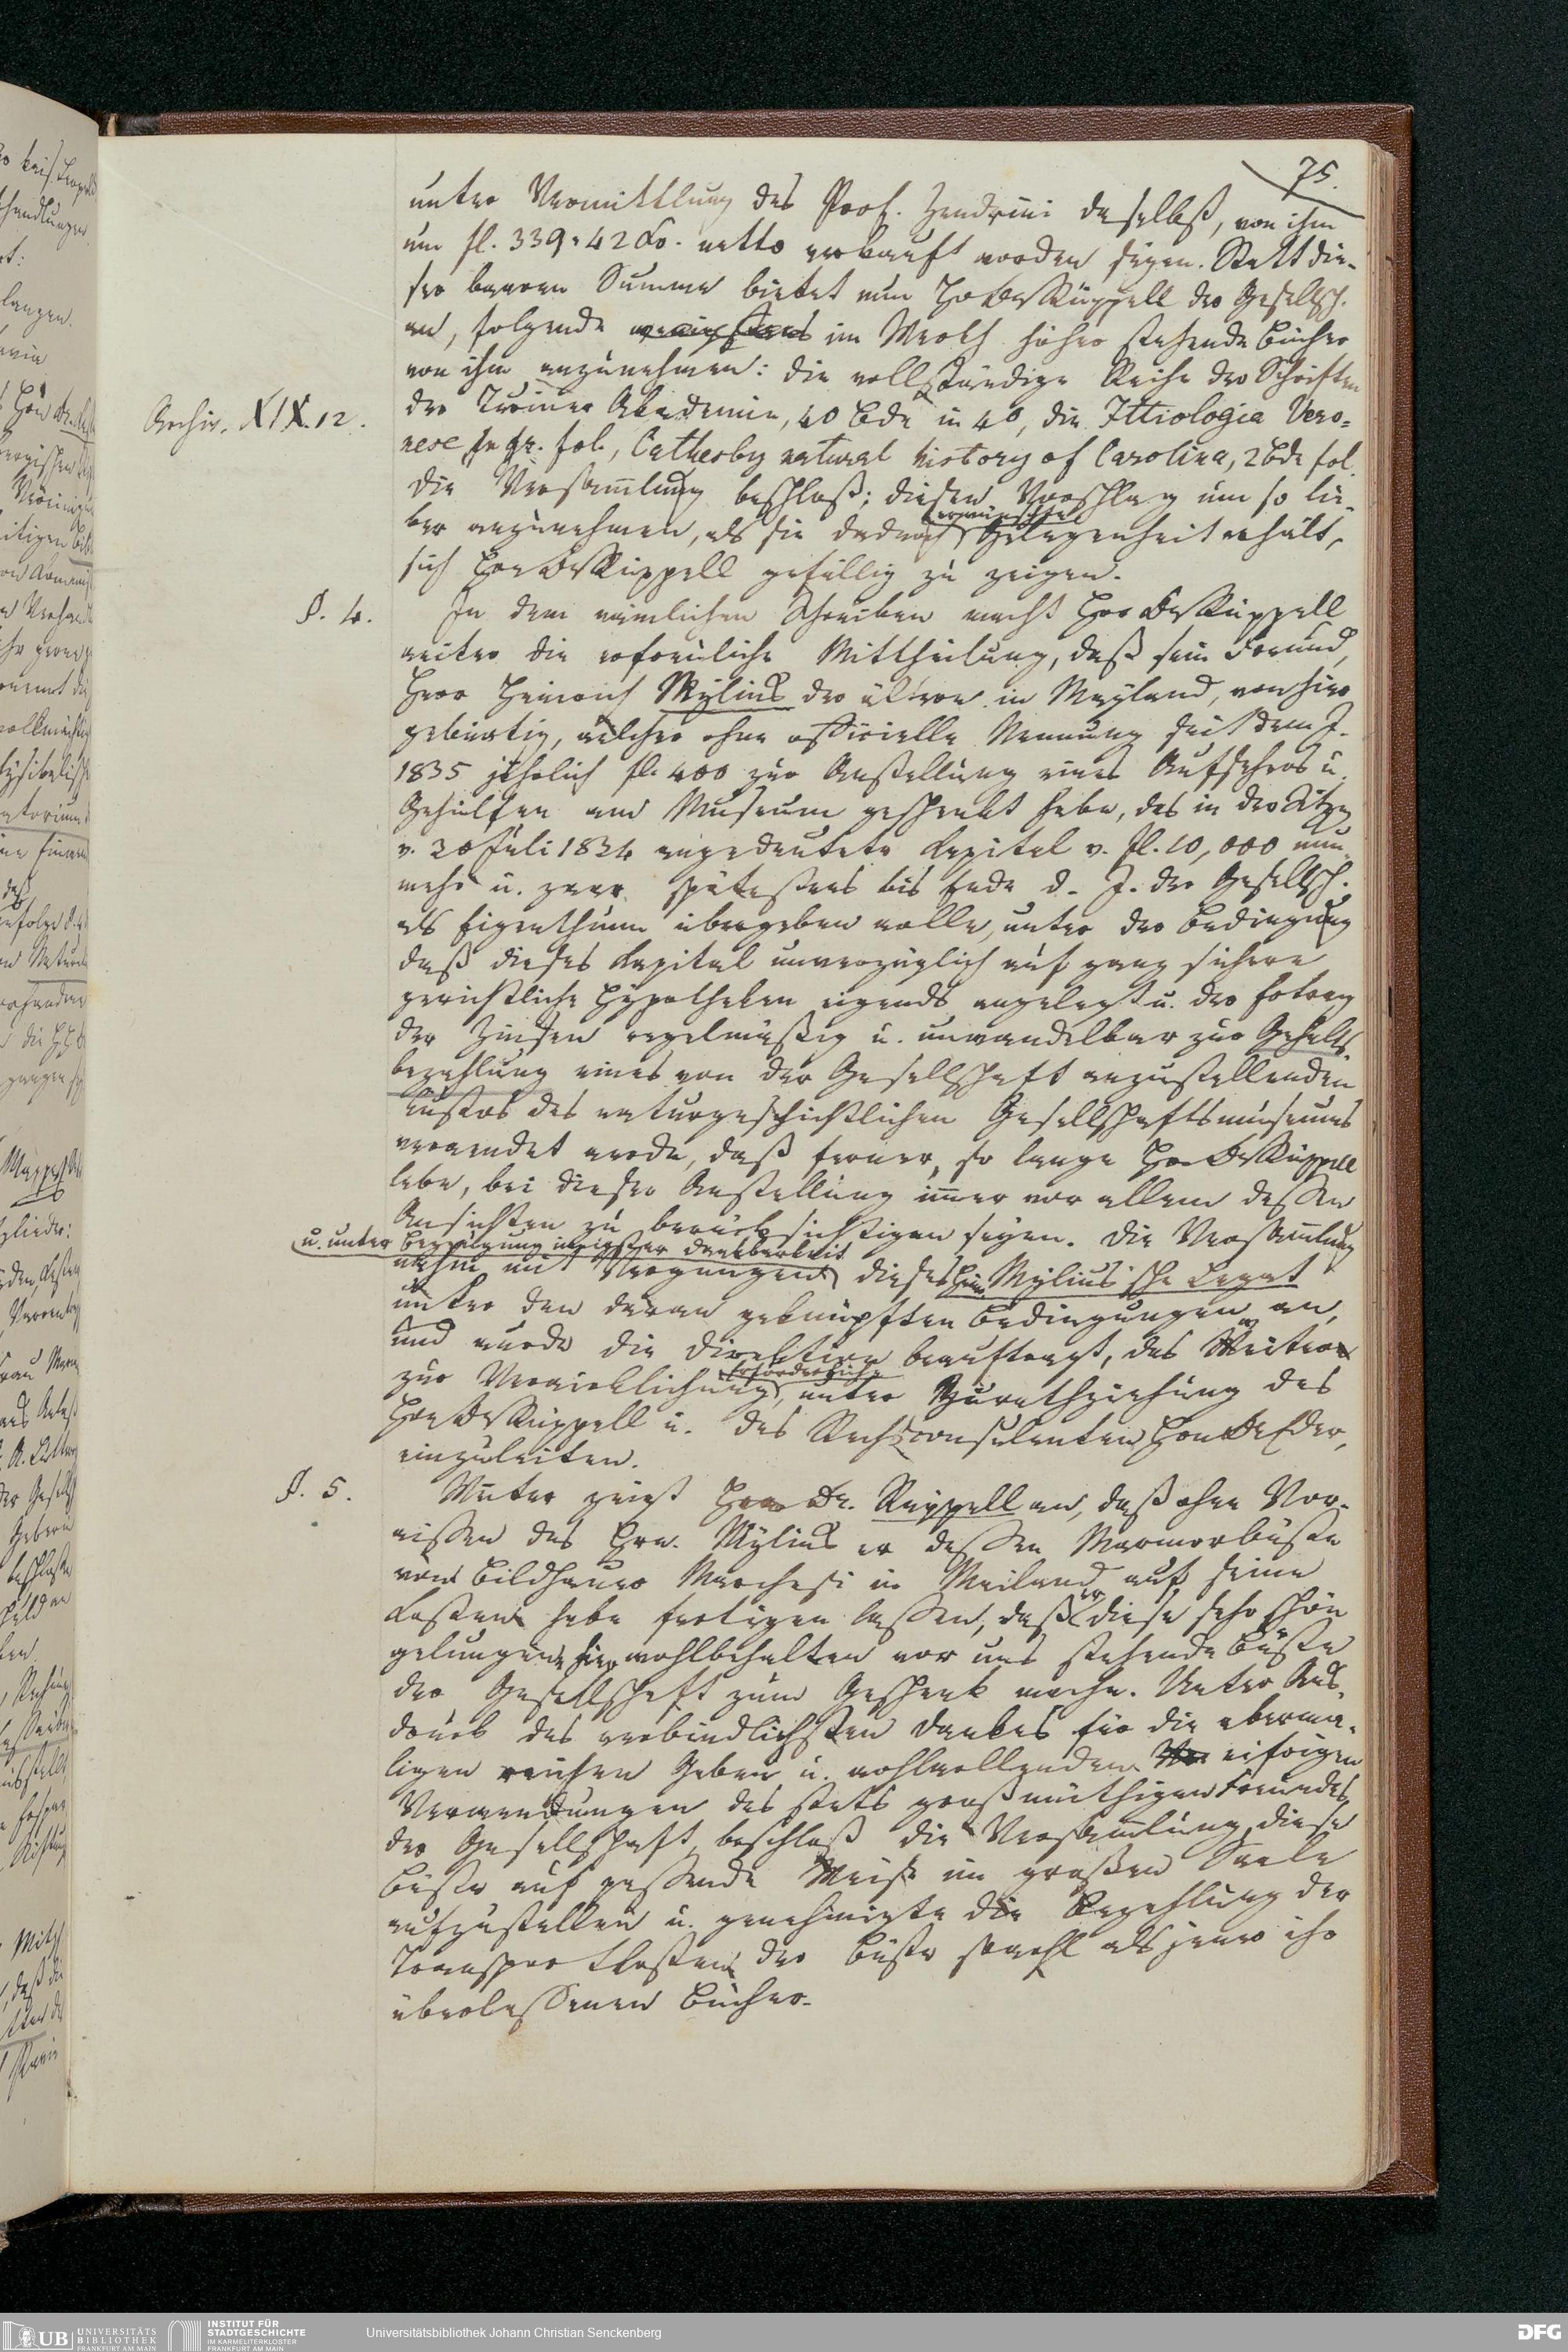 75.
unter Vermittlung des Prof. Zendrini daselbst, von ihm
um fl. 339 " 42 Xr. netto verkauft worden seyen. Statt die-
ser baaren Summe bietet nun Hr Dr Rüppell der Gesellsch.
an, folgende wenigstens im Werth höher stehende Bücher
von ihm anzunehmen: die vollständige Reihe der Schriften
Archiv. XIX.12.
der Turiner Akademie, 40 Bde in 4o, die Ittiologia Vero-
nese in gr. fol., Cathesby natural history of Carolina, 2 Bde fol.
Die Versammlung beschloß; diesen Vorschlag um so lie-
erwünschte
ber anzunehmen, als sie dadurch Gelegenheit erhält,
sich Hrn Dr Rüppell gefällig zu zeigen.
§. 4.
In dem nämlichen Schreiben macht Herr Dr Rüppell
weiter die erfreuliche Mittheilung, daß sein Freund,
Herr Heinrich Mylius der ältere in Mayland, von hier
gebürtig, welcher ohne officielle Nennung seit dem J.
1835 jährlich fl. 400 zur Anstellung eines Aufsehers u.
Gehülfen am Museum geschenkt habe, das in der Sitzg
v. 30 Juli 1834 angedeutete Kapital v. fl. 10,000 nun-
mehr u. zwar spätestens bis Ende d. J. der Gesellsch.
als Eigenthum übergeben wolle, unter der Bedingung
daß dieses Kapital unverzüglich auf ganz sichere
gerichtliche Hypotheken eigends angelegt u. der Ertrag
der Zinsen regelmäßig u. unwandelbar zur Gehalts-
bezahlung eines von der Gesellschaft anzustellenden
Custos des naturgeschichtlichen Gesellschaftsmuseums
verwendet werde, daß ferner, so lange Hr Dr Rüppell
lebe, bei dieser Anstellung immer vor allem dessen
Ansichten zu berücksichtigen seyen. Die Versammlung
u. unter Bezeugung innigster Dankbarkeit
nahm mit Vergnügen dieses Hein. Mylius'sche Legat
unter den daran geknüpften Bedingungen an,
und wurde die Direktion beauftragt, das Weitere
Erforderliche
zur Verwirklichung, unter Zurathziehung des
Hrn Dr Rüppell u. des Rechtsconsulenten Hrn Dr Eder,
einzuleiten.
§. 5.
Weiter zeigt Herr Dr. Rüppell an, daß ohne Vor-
wissen des Hrn. Mylius er dessen Marmorbüste
vom Bildhauer Marchesi in Mailand auf seine
er
Kosten habe fertigen lassen, daß diese sehr schön
gelungene hier wohlbehalten vor uns stehende Büste
der Gesellschaft zum Geschenk mache. Unter Aus-
druck des verbindlichsten Dankes für die aberma-
ligen reichen Gaben u. wohlwollenden Ver eifrigen
Verwendungen des stets großmüthigen Freundes
der Gesellschaft, beschloß die Versammlung, diese
Büste auf passende Weise im großen Saale
aufzustellen u. genehmigte die Bezahlung der
Transportkosten der Büste sowohl als jener ihr
überlassenen Bücher.
UB UNIVERSITÄTS
BIBLIOTHEK
FRANKFURT AM MAIN
INSTITUT FÜR
STADTGESCHICHTE
IM KARMELITERKLOSTER
FRANKFURT AM MAIN
Universitätsbibliothek Johann Christian Senckenberg
DFG